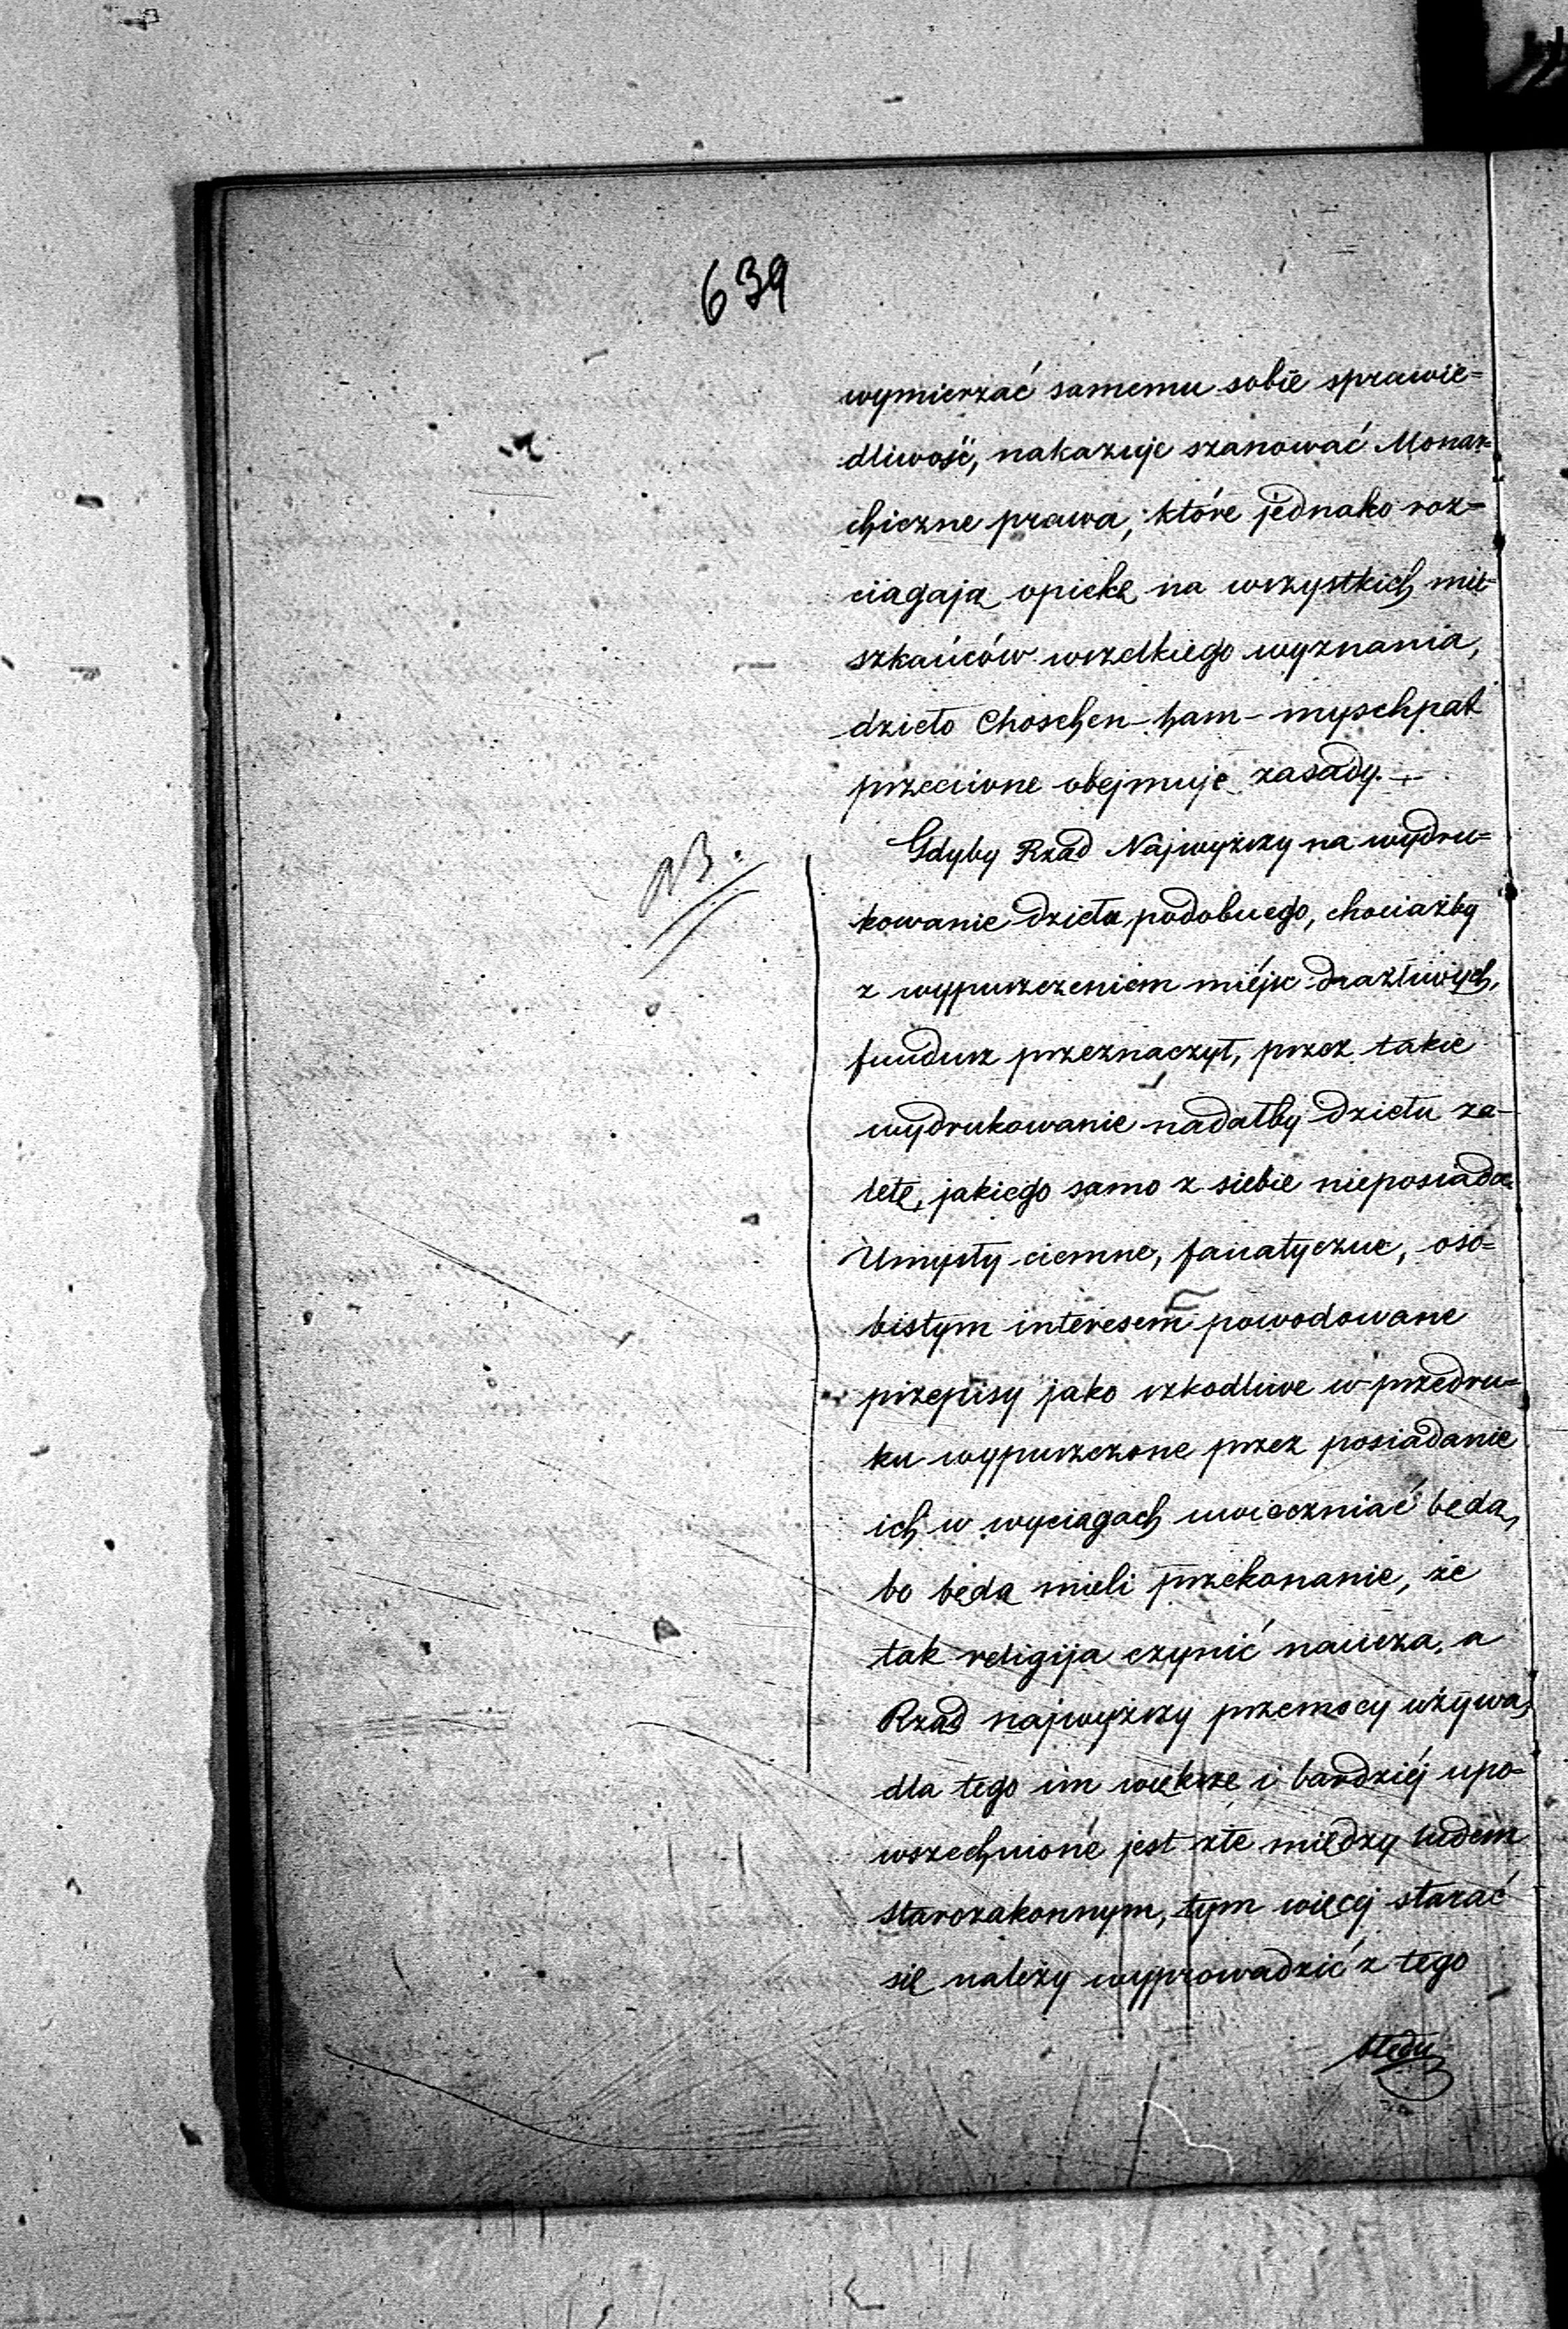 639
wymierzać samemu sobie sprawie=
dliwość, nakazuje szanować Monar=
chiczne prawa, które jednako roz=
ciągają opiekę na wszystkich mie=
szkańców wszelkiego wyznania,
dzieło Choschen-ham-myschpat
przeciwne obejmuje zasady. —
NB.
Gdyby Rząd Najwyższy na wydru=
kowanie dzieła podobnego, chociażby
z wypuszczeniem miejsc drażliwych,
fundusz przeznaczył, przez takie
wydrukowanie nadałby dziełu za-
letę, jakiego samo z siebie nieposiada.
Umysły ciemne, fanatyczne, oso=
bistym interesem powodowane
przepisy jako szkodliwe w przedru=
ku wypuszczone przez posiadanie
ich w wyciągach uwieczniać będą,
bo będą mieli przekonanie, że
tak religija czynić naucza, a
Rząd najwyższy przemocy używa,
dla tego im większe i bardziéj upo-
wszechnione jest złe między ludem
starozakonnym, tym więcej starać
się należy wyprowadzić z tego
błędu